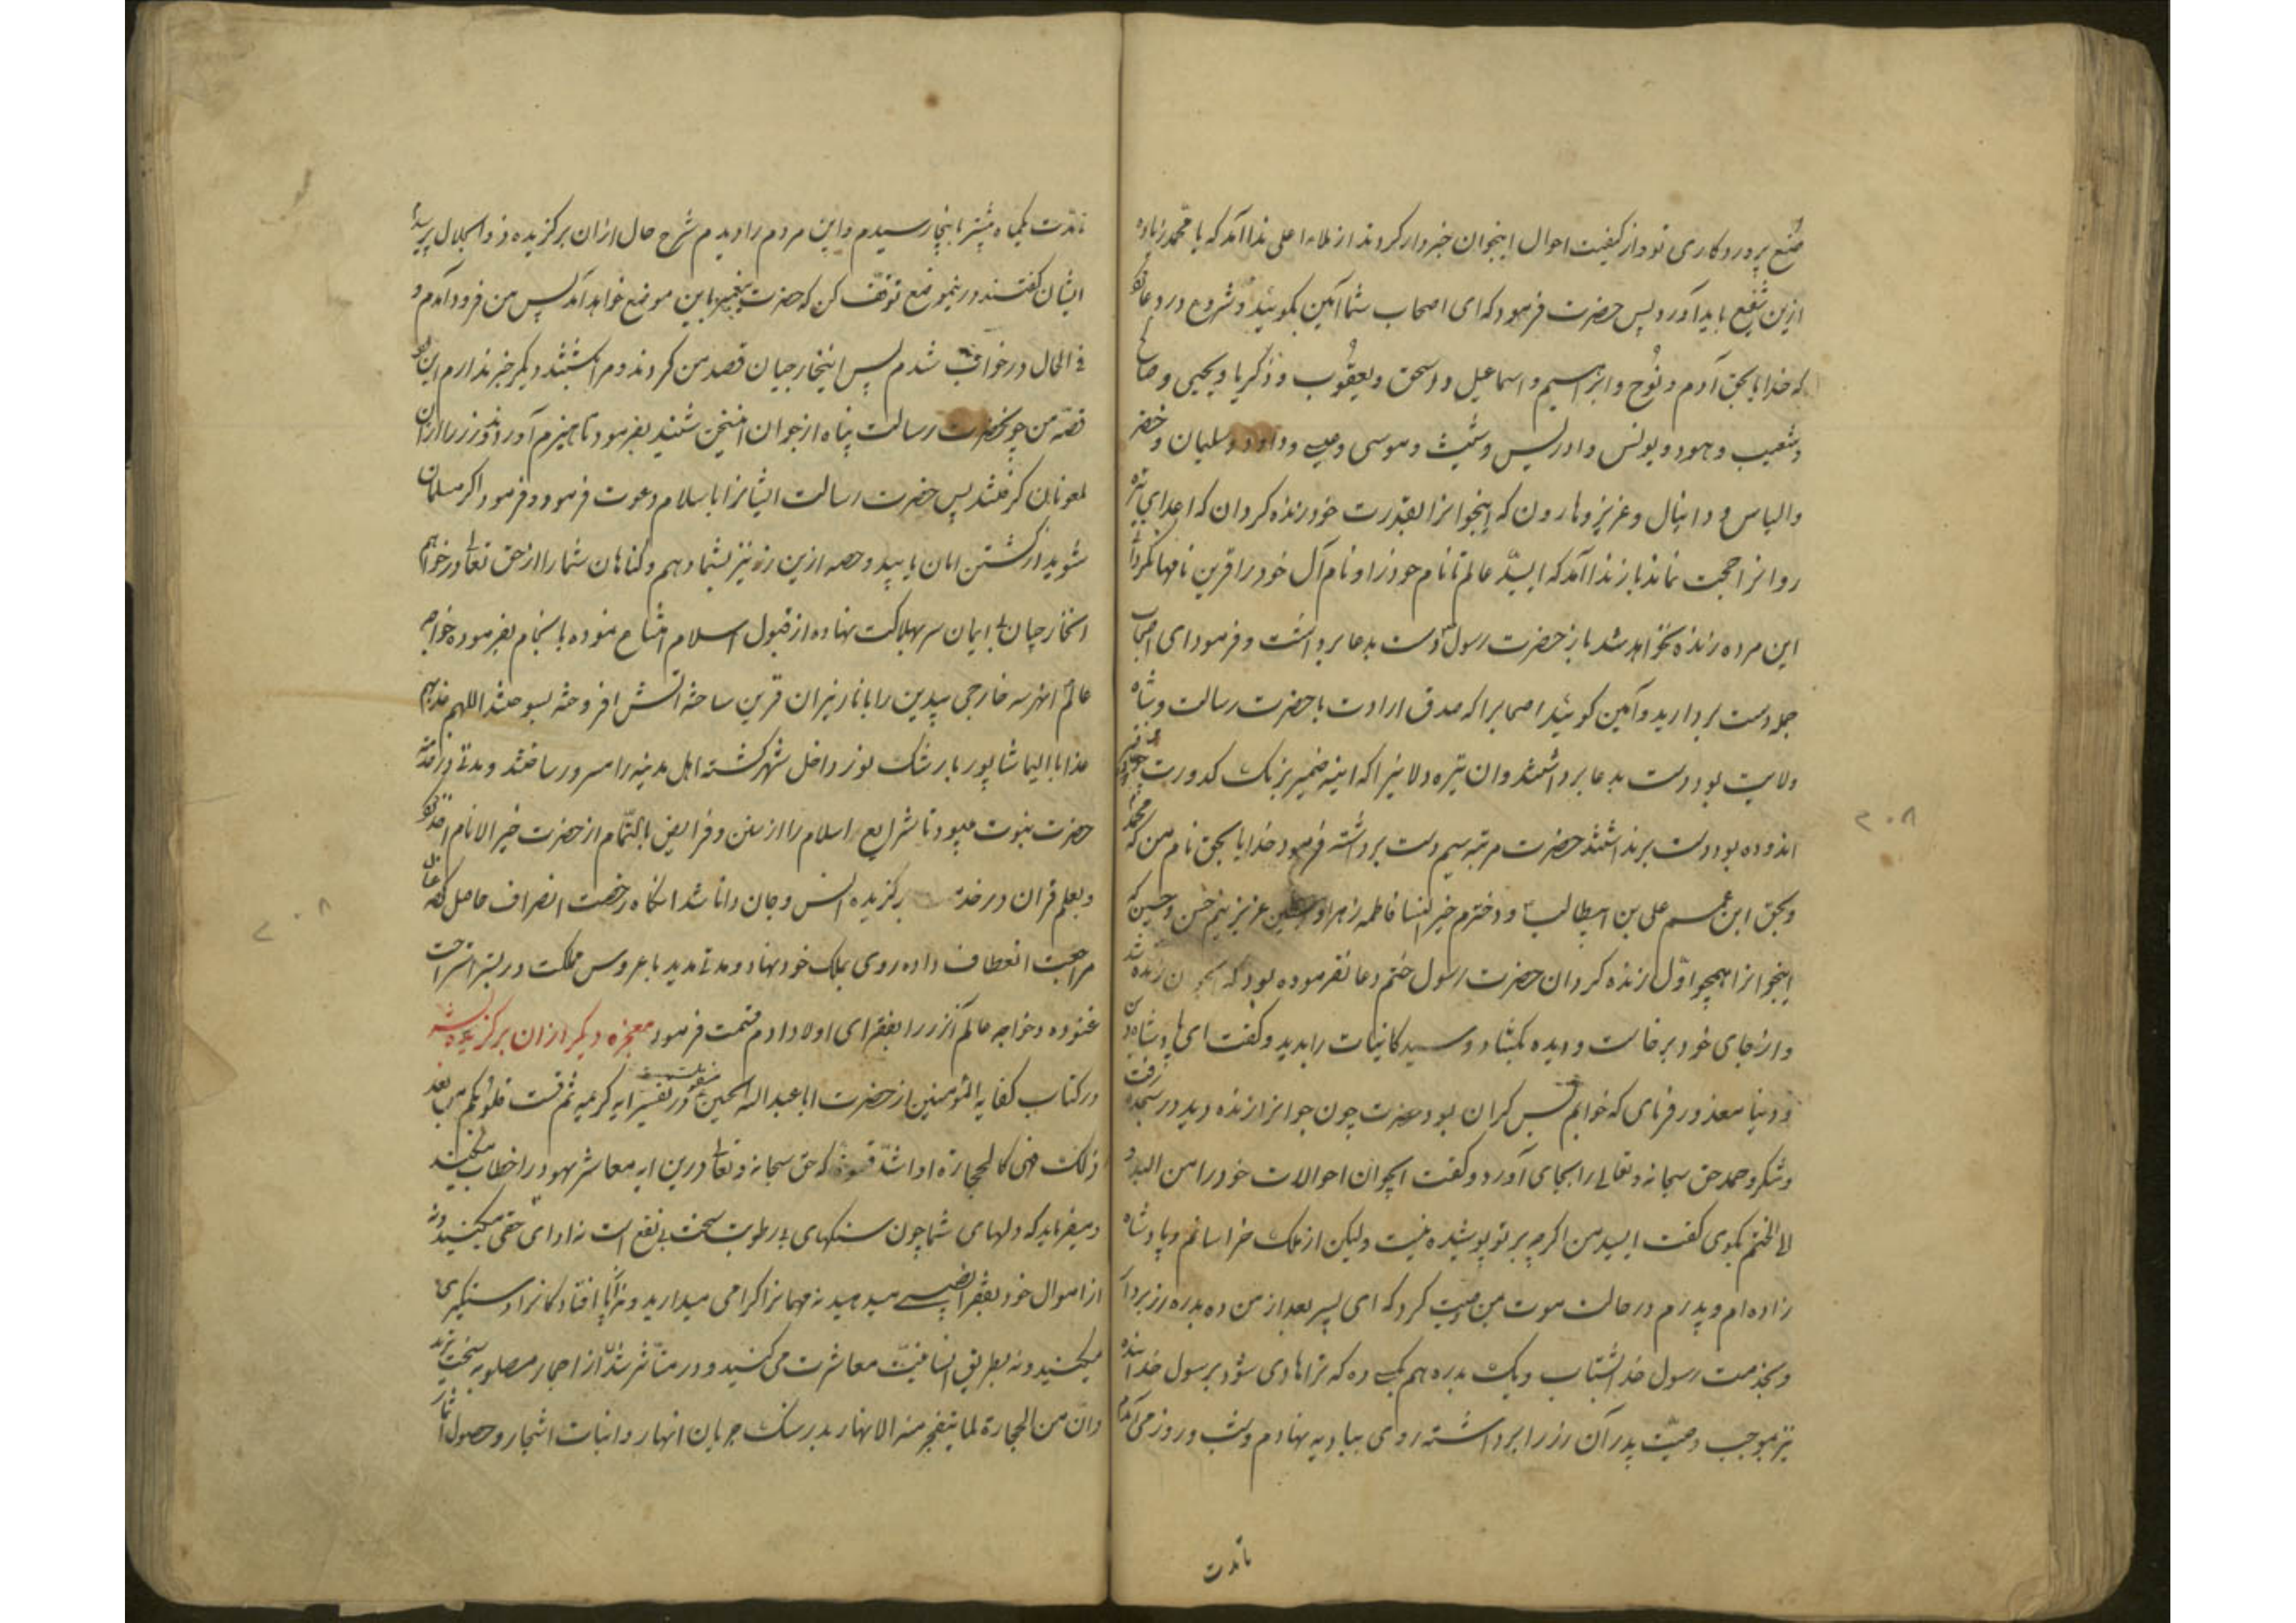 صنع پروردکاری تو و از کیفیت احوال اینجوان خبردار کردند از ملاء اعلی ندا آمد که یا محمد زیاده
ازین شفیع باید آورد پس حضرت فرمود که ای اصحاب شما آمین بکوئید و شروع در دعا
که خدایا بحق آدم و نوح و ابراهیم و اسماعیل و اسحق و یعقوب و زکریا و یحیی و صالح
و شعیب و هود و یونس و ادریس و شیث و موسی و عیسی و داود و سلیمان و خضر
و الیاس و دانیال و عزیز و هارون که اینجوانرا بقدرت خود زنده کردان که اعدای تیره
روانرا حجت نماند باز ندا آمد که ای سید عالم تا نام خود را و نام آل خود را قرین نامها نکردانی
این مرده زنده نخواهد شد باز حضرت رسول دست بدعا برداشت و فرمود ای اصحاب
جمله دست بردارید و آمین کوئید اصحابرا که صدق ارادت با حضرت رسالت و شاه
ولایت بود دست بدعا برداشتند وان تیره دلانیرا که اینه ضمیر بزنک کدورت
اندوده بود دست برنداشتند حضرت مرتبه سیم دست برداشته فرمود خدایا بحق نام من که محمدم
و بحق ابن عمم علی بن ابیطالب و دخترم خیر النسا فاطمه زهرا و سبطین عزیزینم حسن و حسین که
اینجوانرا همچو اول زنده کردان حضرت رسول ختم دعا نفرموده بود که جوان زنده شد
و از جای خود برخاست و دیده بکشاد و سید کاینات را بدید و کفت ای پادشاه دین
و دنیا معذور فرمای که خوابم بس کران بود حضرت چون جوانرا زنده دید در سجده رفت
و شکر و حمد حق سبحانه و تعالی را بجای آورد و کفت ایجوان احوالات خود را من البدو
الی الختم بکوی کفت ای سید من اکرچه بر تو پوشیده نیست ولیکن از ملک خراسانم و پادشاه
زاده ام و پدرم در حالت موت بمن وصیت کرد که ای پسر بعد از من ده بدره زر بردار
و بخدمت رسول خدا شتاب و یک بدره هم بکسی ده که ترا هادی شود برسول خدا بنده
نیز بموجب وصیت پدر آن زر را برداشته روی ببادیه نهادم و شب و روز می آمدم
تا مدت
۲۰۸
تا مدت یکماه بیشتر تا اینجا رسیدم و این مردم را دیدم شرح حال ازان برکزیده ذو الجلال پرسیدم
ایشان کفتند درینموضع توقف کن که حضرت پیغمبر باین موضع خواهد آمد پس من فرود آمدم و
فی الحال در خواب شدم پس اینخارجیان قصد من کردند و مرا کشتند دیکر خبر ندارم این بود
قصه من چو حضرت رسالت پناه از جوان اینسخن شنید بفرمود تا هیزم آوردند و زر را ازان
ملعونان کرفتند پس حضرت رسالت ایشانرا باسلام دعوت فرمود و فرمود اکر مسلمان
شوید از کشتن امان یابید و حصه ازین زر نیز بشما دهم و کناهان شما را از حق تعالی در خواهم
انخارجیان بی ایمان سر بهلاکت نهاده از قبول اسلام امتناع نموده بفرموده خواجه
عالم انهر سه خارجی بیدین را با نار نیران قرین ساخته آتش افروخته بسوختند اللهم عذبهم
عذابا الیما شاپور با رشک نوز داخل شهر کشته اهل مدینه را مسرور ساختند و مدتی در خدمت
حضرت نبوت میبود تا شرایع اسلام را از سنن و فرایض بالتمام از حضرت خیر الانام اخذ نمود
و بعلم قران در خدمت برکزیده انس و جان دانا شد انکاه رخصت انصراف حاصل کرد عنان
مراجعت انعطاف داده روی بملک خود نهاد و مدتی مدید با عروس مملکت در بستر استراحت
غنوده و خواجه عالم آنزر را بفقرای اولاد ادم قسمت فرمود معجزه دیکر ازان برکزیده
در کتاب کفایه المؤمنین از حضرت ابا عبد اله الحسین منقولست در تفسیر ایه کریمه ثم قست قلوبکم من بعد
ذلک فهی کالحجارة او اشد قسوة که حق سبحانه و تعالی درین ایه معاشر یهود را خطاب میکند
و میفرماید که دلهای شما چون سنکهای بی رطوبت سخت بی نفع است نه ادای حقی میکنید و نه
از اموال خود بفقرا نصیبی میدهید نه مهمانرا کرامی میدارید و نه از پا افتادکانرا دستکیری
میکنید و نه بطریق انسانیت معاشرت می کنید و در متأثر شدن از احجار مصلوبه سخت ترید
و ان من الحجارة لما یتفجر منه الانهار بدر سنک جریان انهار و انبات اشجار و حصول اثمار
۲۰۸